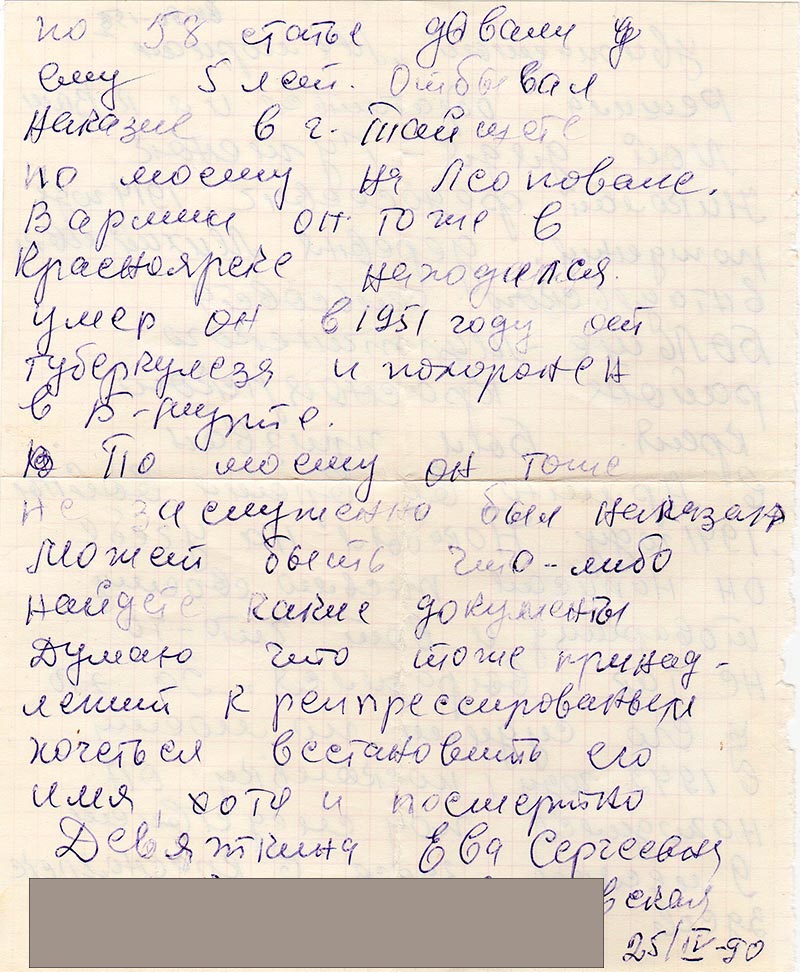 по 58 статье давали
ему 5 лет. Отбывал
наказие в г. Тайшете
по моему на лсоповале.
В армии он тоже в
Красноярске находился.
умер он в 1951 году от
туберкулеза и похоронен
в Б-мурте.
По моему он тоже
не заслуженно был наказан
может быть что-либо
найдете какие документы
Думаю что тоже принад-
лежит к реипрессированым
хочеться всстановить его
имя, хотя и посмертно
Девяткина Ева Сергеевна
вская
25/IV-90